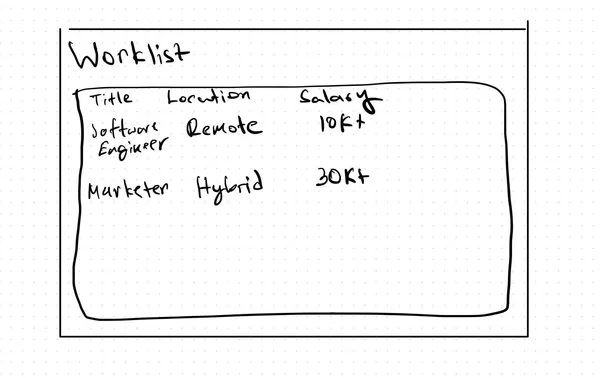 Worklist
Title Location Salary
Software Remote 10K+
Engineer
Marketer Hybrid 30K+